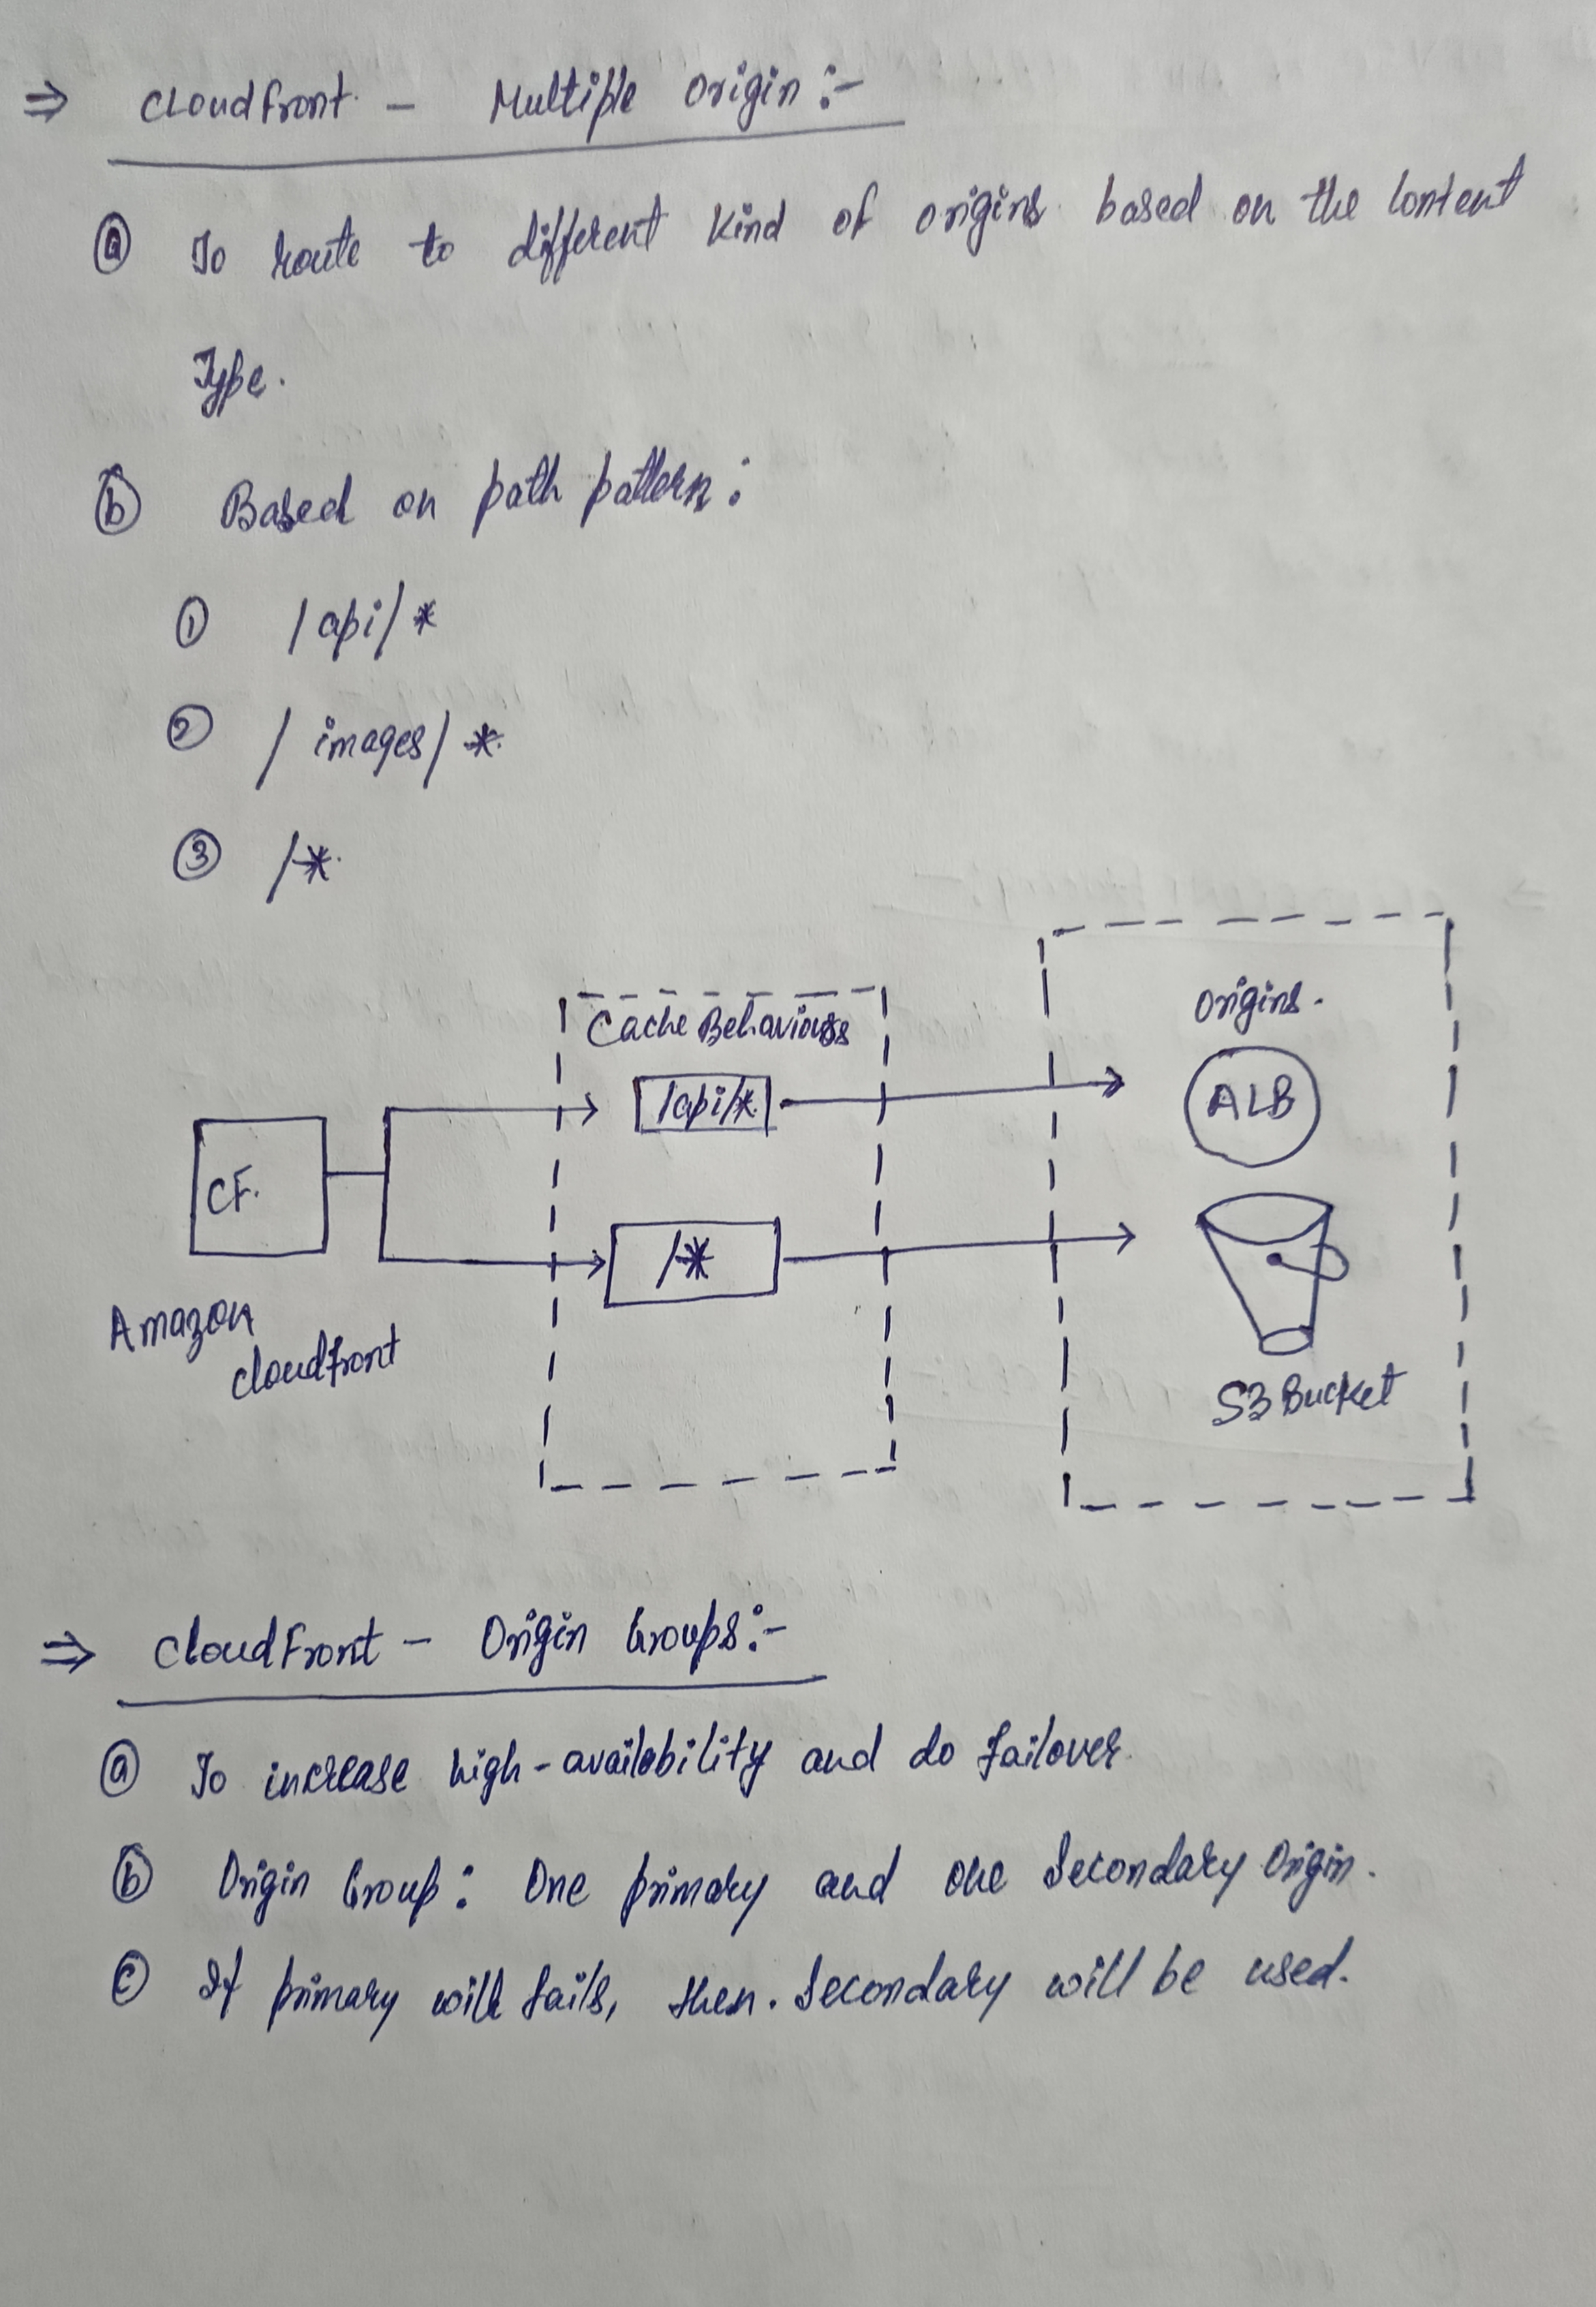 ⇒ CloudFront - Multiple Origin :-
ⓐ To route to different kind of origins based on the Content
Type.
ⓑ Based on path pattern :
① /api/*
② /images/*
③ /*
Origins.
Cache Behaviours
/api/*
ALB
CF.
/*
Amazon
cloudfront
S3 Bucket
⇒ CloudFront - Origin Groups :-
ⓐ To increase high-availability and do failover
ⓑ Origin Group : One primary and one Secondary Origin.
ⓒ If primary will fails, then. Secondary will be used.